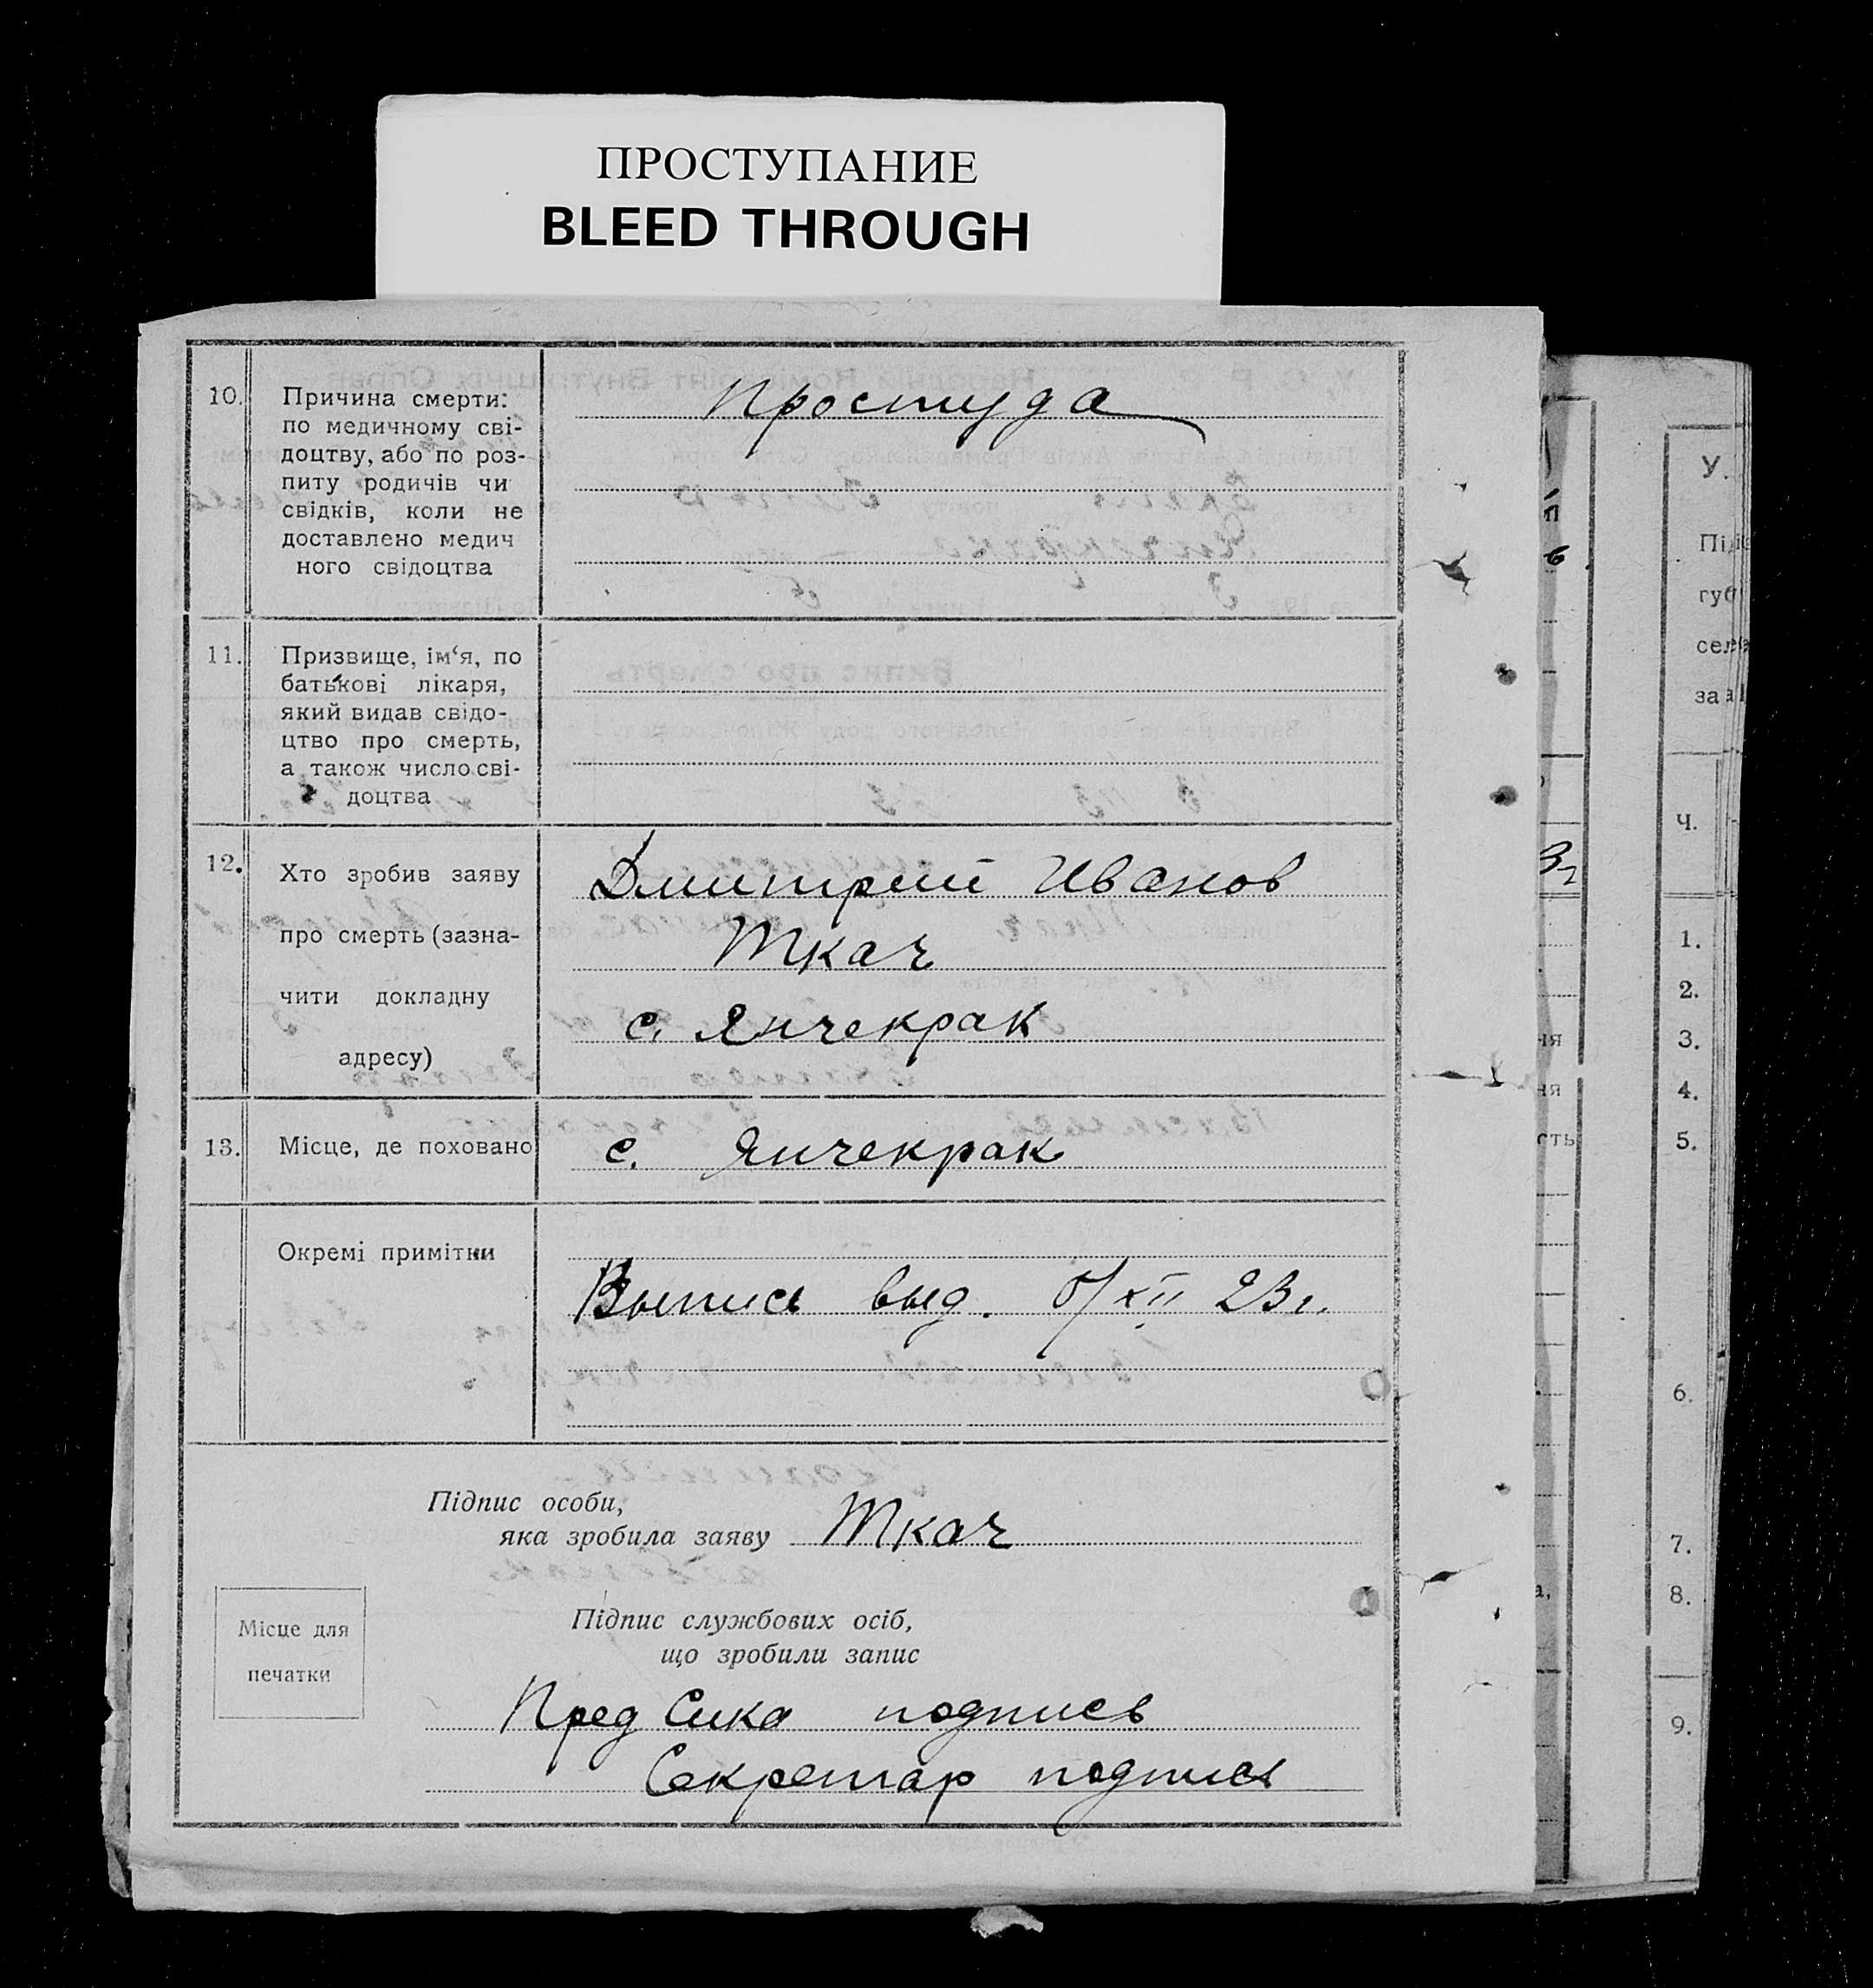 ПРОСТУПАНИЕ
BLEED THROUGH
10.
Причина смерти:
по медичному сві-
доцтву, або по роз-
питу родичів чи
свідків, коли не
доставлено медич
ного свідоцтва
Простуда
11.
Призвище, ім‘я, по
батькові лікаря,
який видав свідо-
цтво про смерть,
а також число сві-
доцтва
12.
Хто зробив заяву
про смерть (зазна-
чити докладну
адресу)
Дмитрий Иванов
Ткач
с. Янчекрак
13.
Місце, де поховано
с. Янчекрак
Окремі примітки
Выпись выд. 5/XII 23 г.
Підпис особи,
яка зробила заяву Ткач
Місце для
печатки
Підпис службових осіб,
що зробили запис
Пред Сика подпись
Секретар подпись
У.
Під
губ
сел
за
Ч.
1.
2.
3.
4.
5.
6.
7.
8.
9.